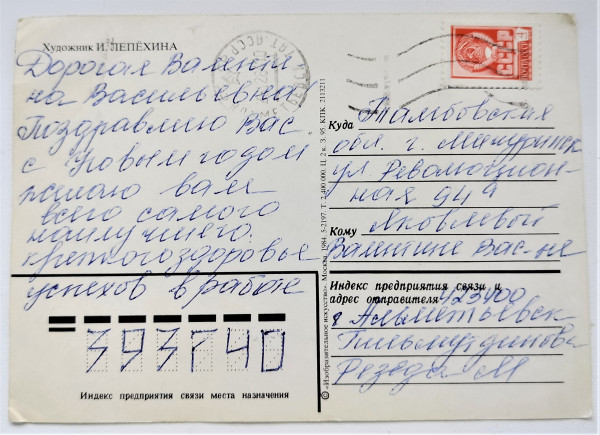 Художник И. ЛЕПЁХИНА
Дорогая Валенти
на Васильевна
Поздравляю Вас
с Новым годом
желаю вам
всего самого
наилучшего.
крепкого здоровье
успехов в работе
393740
Индекс предприятия связи места назначения
© «Изобразительное искусство». Москва. 1984. 5-2197. Т. 2 400 000. Ц. 2 к. З. 95. КПК. 2113211
СССР
Куда Тамбовская
обл. г. Мичуринск
ул Революцион-
ная д 49
Кому Яковлевой
Валентине Вас-не
Индекс предприятия связи и
адрес отправителя 423400
г Альметьевск
Резеда М